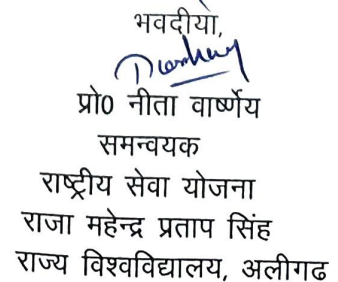 भवदीया,
प्रो0 नीता वार्ष्णेय
समन्वयक
राष्ट्रीय सेवा योजना
राजा महेन्द्र प्रताप सिंह
राज्य विश्वविद्यालय, अलीगढ